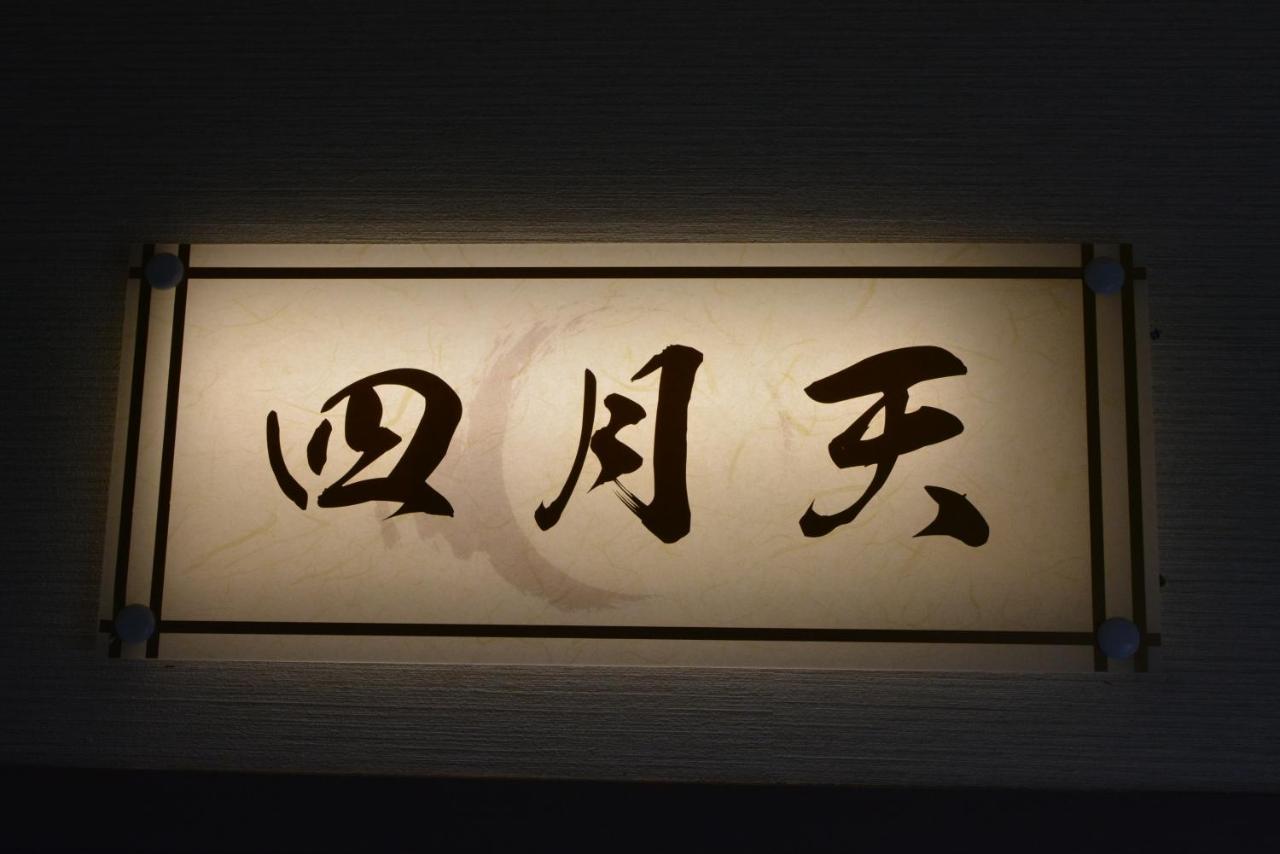 四月天